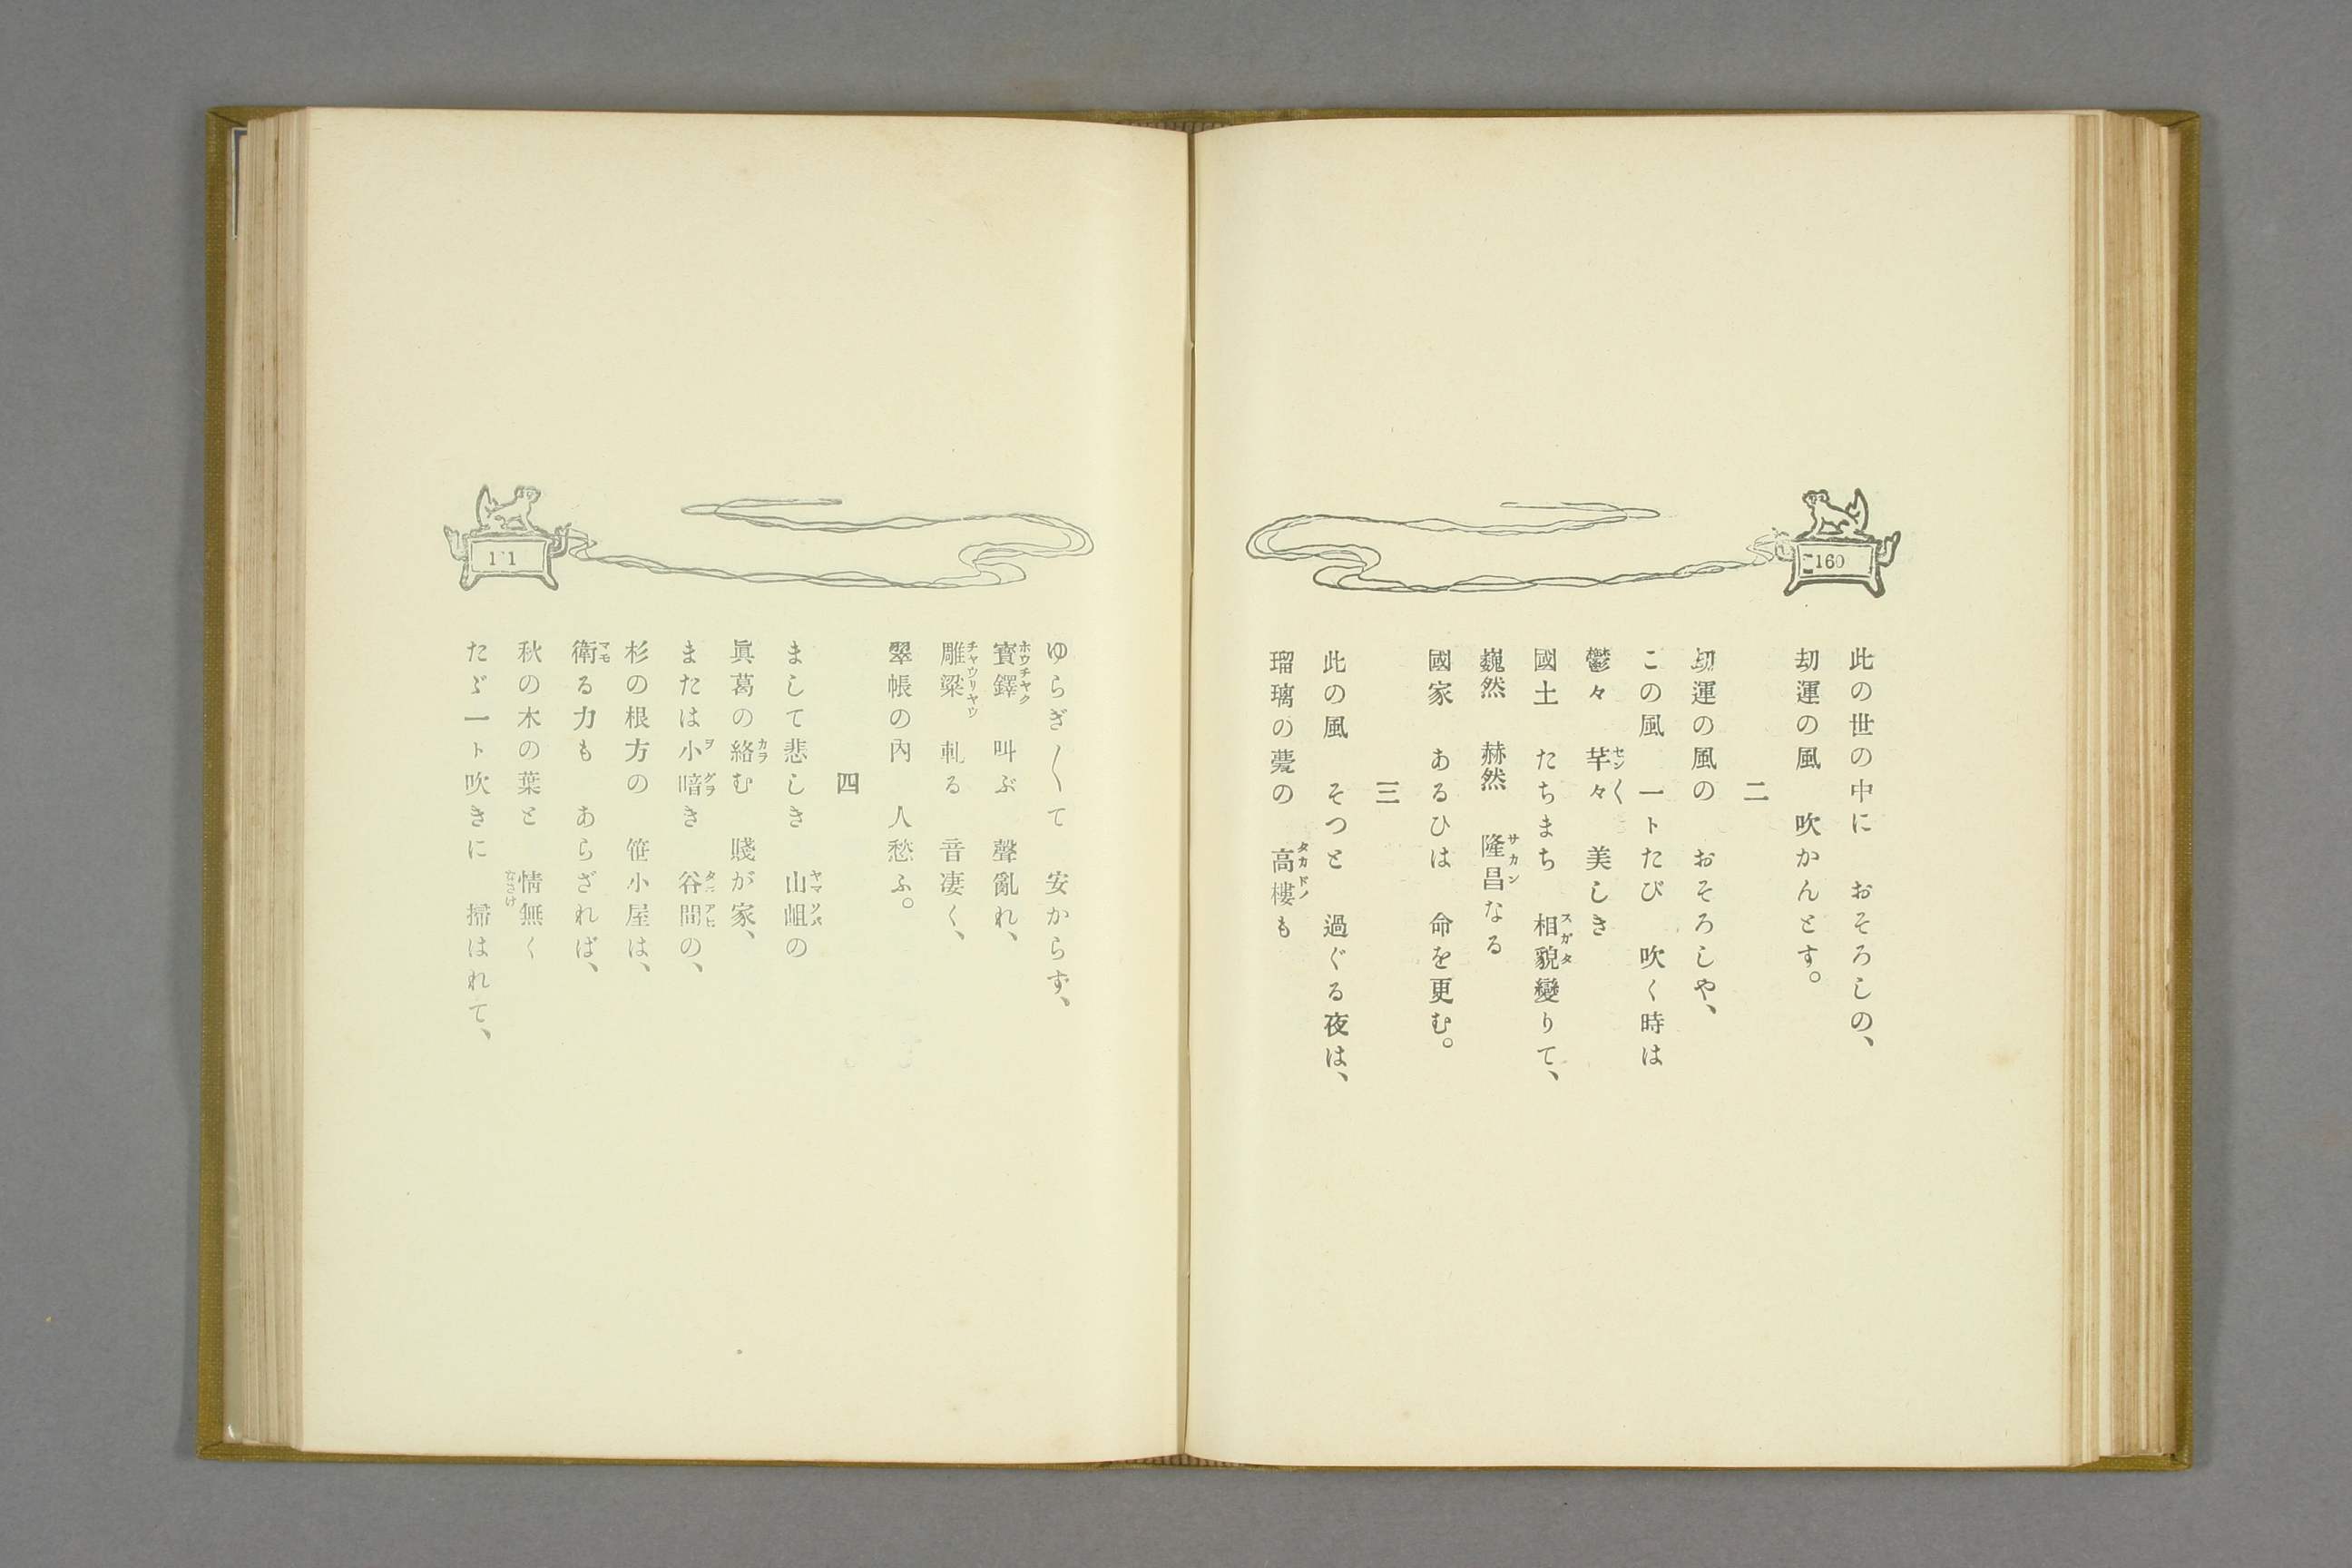 160
此の世の中に　おそろしの、
刧運の風　吹かんとす。
二
刧運の風の　おそろしや、
この風　一トたび　吹く時は
鬱々　芊々く　美しき
國土　たちまち　相貌變りて、
巍然　赫然　隆昌なる
國家　あるひは　命を更む。
三
此の風　そつと　過ぐる夜は、
瑠璃の甍の　高樓も
ゆらぎ〱て　安からず、
寳鐸　叫ぶ　聲亂れ、
雕梁　軋る　音凄く、
翠帳の內　人愁ふ。
四
まして悲しき　山岨の
眞葛の絡む　賤が家、
または小暗き　谷間の、
杉の根方の　笹小屋は、
衛る力も　あらざれば、
秋の木の葉と　情無く
たゞ一ト吹きに　掃はれて、